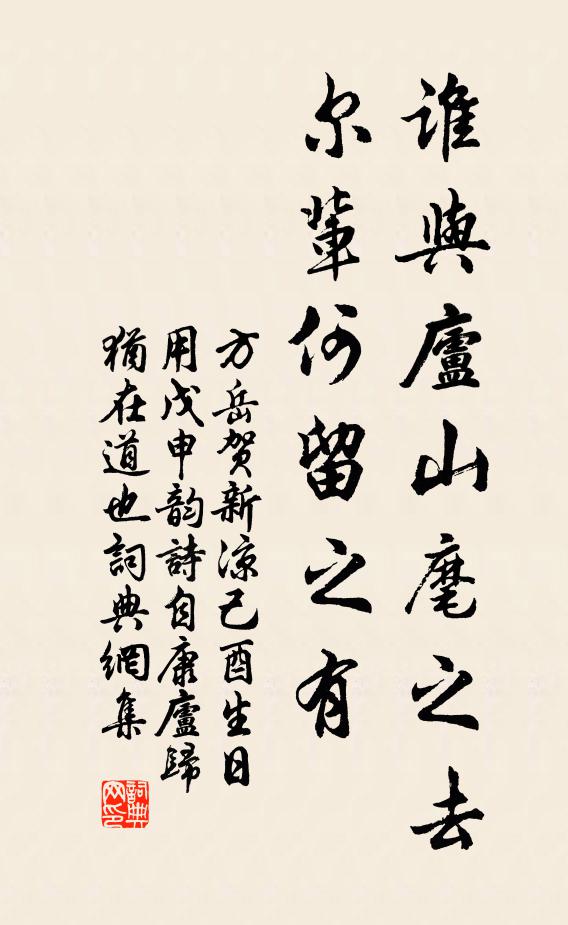 誰與廬山麾之去
尔輩何留之有
方岳賀新涼己酉生日
用戊申韵詩自康廬歸
猶在道也詞典網集
詞典网印